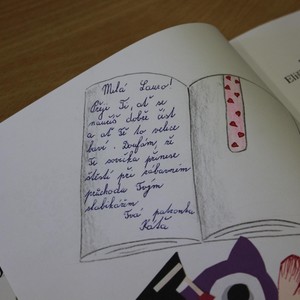 Milá Lauro!
Přeji Ti, ať se
naučíš dobře číst
a ať Tě to velice
baví. Doufám, že
Ti sovička přinese
štěstí při zábavném
průchodu Tvým
slabikářem
Tvá patronka
Káťa